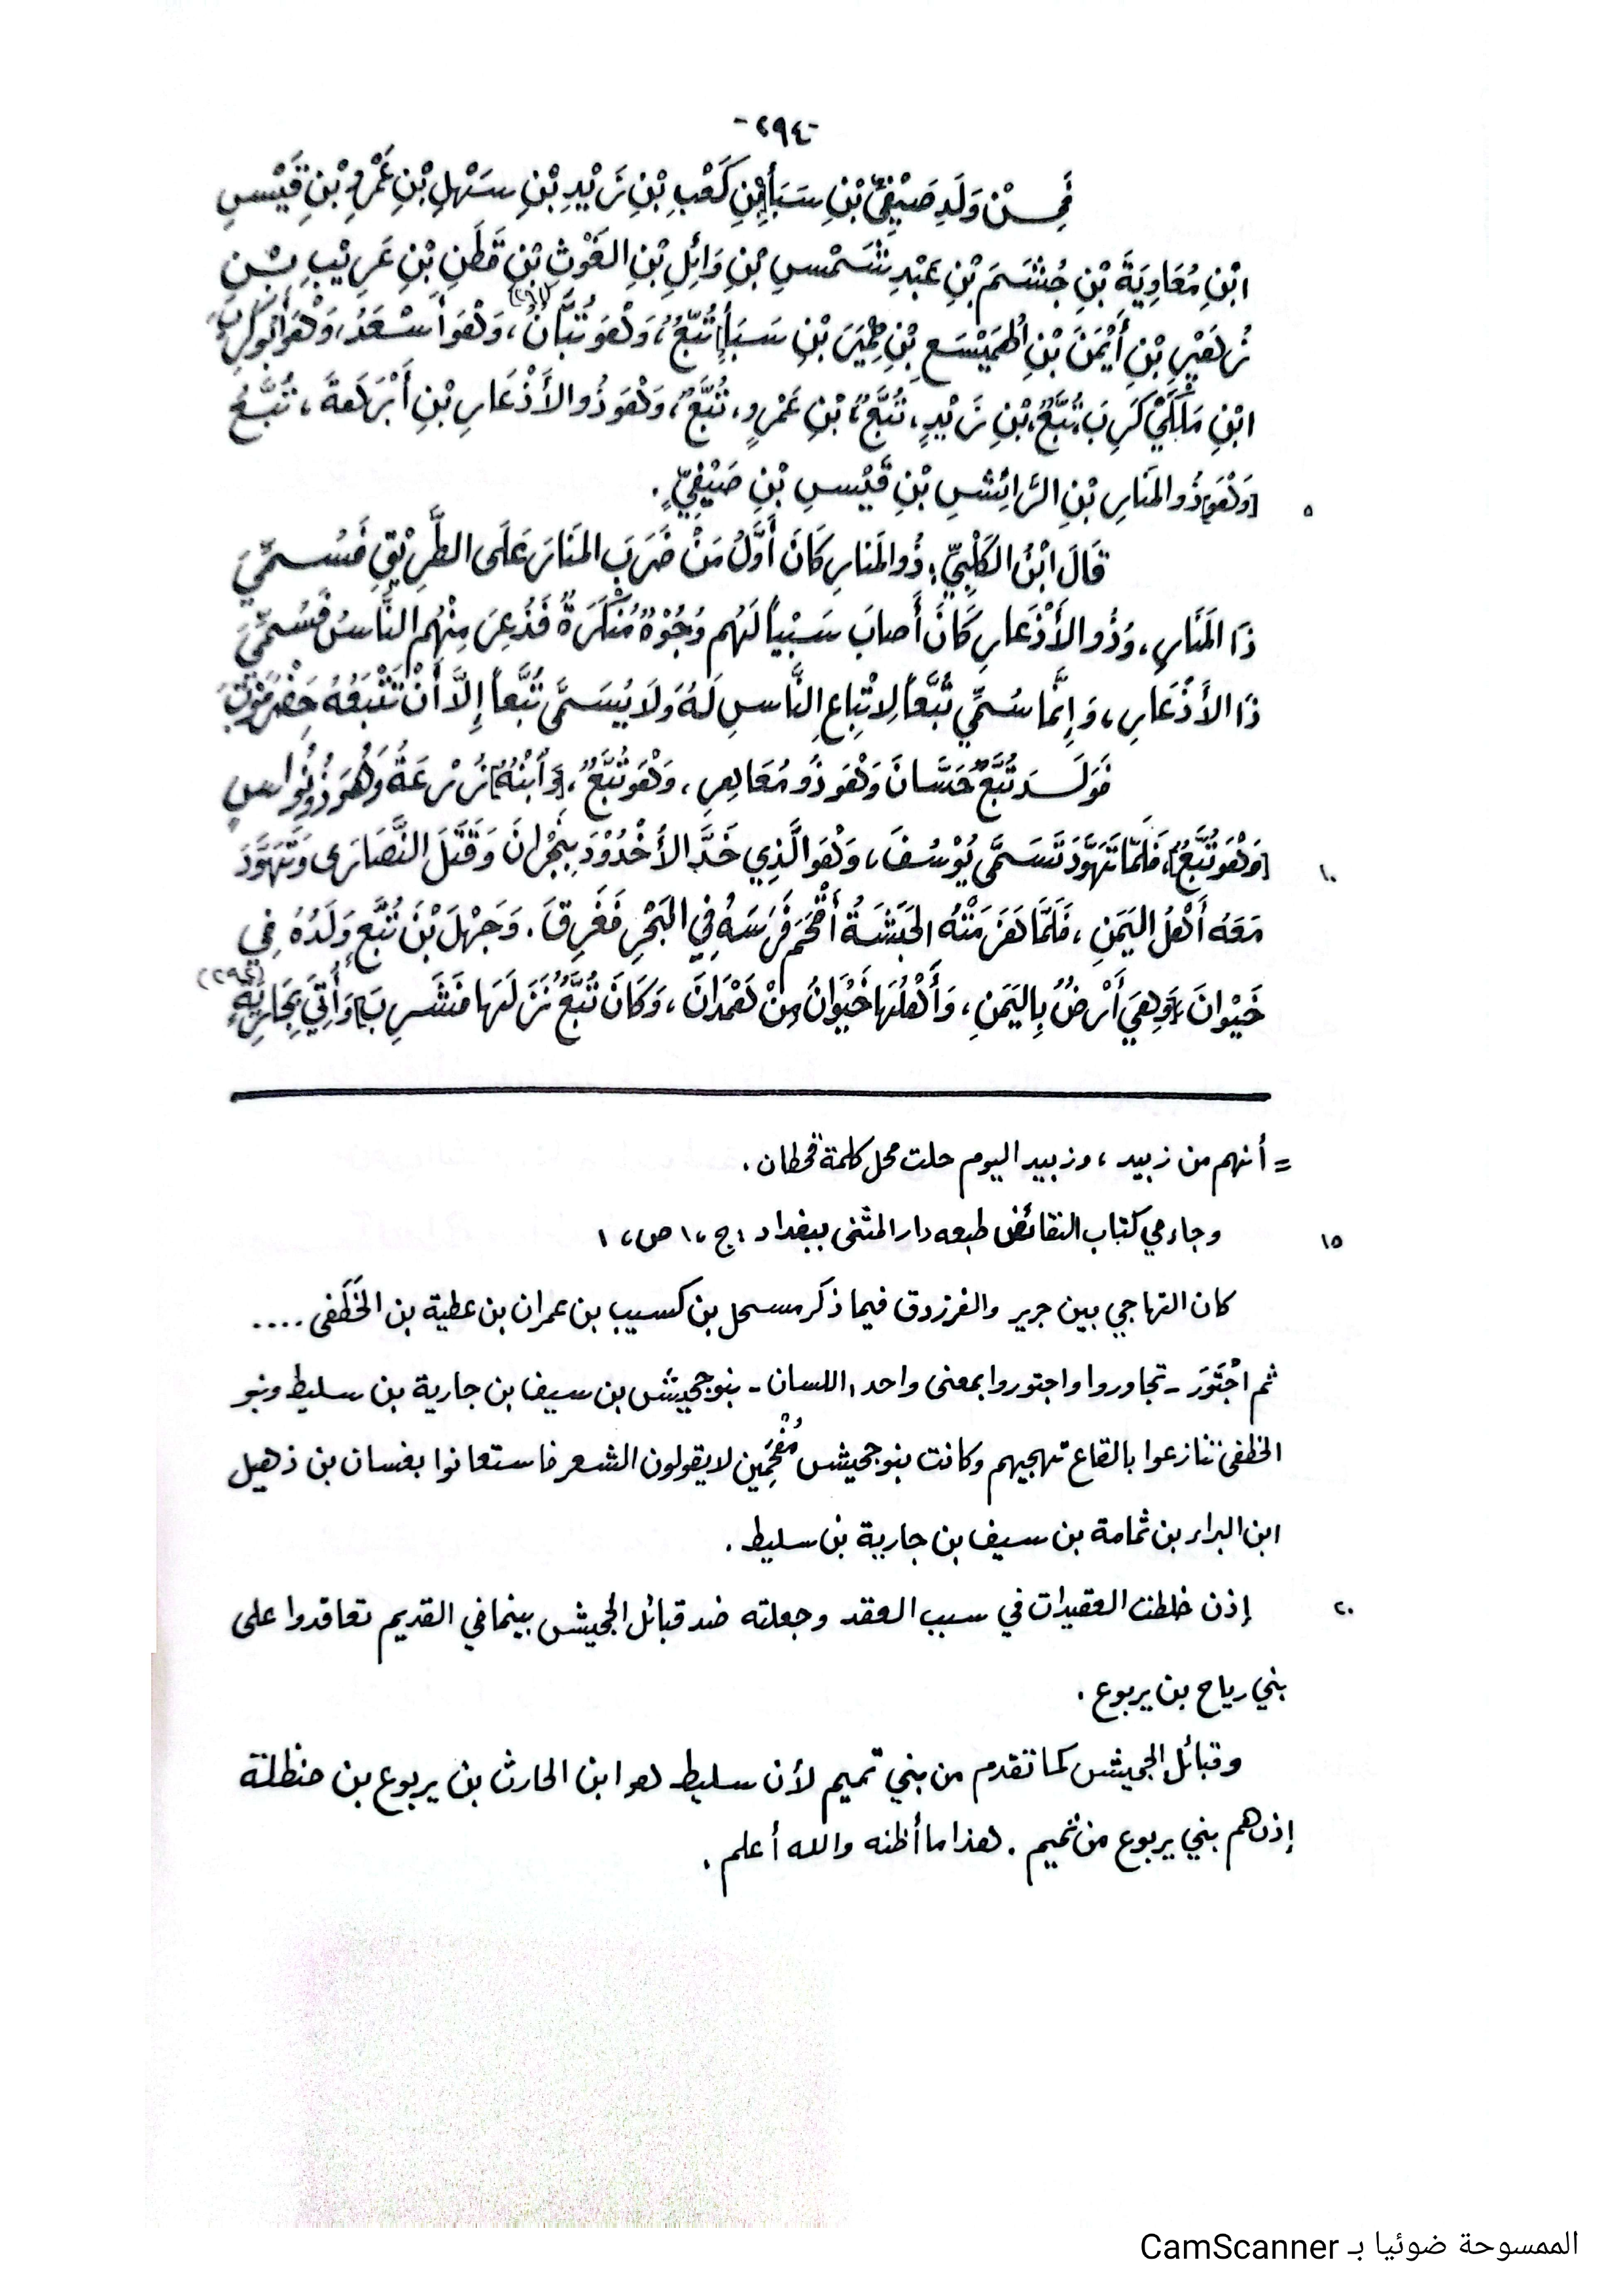 -٢٩٤-
فَمِـنْ وَلَدِ صَيْفِيِّ بْنِ سَبَأِ [بْنِ كَعْبِ بْنِ زَيْدِ بْنِ سَهْلِ بْنِ عَمْرِو بْنِ قَيْسِ
ابْنِ مُعَاوِيَةَ بْنِ جُشَمَ بْنِ عَبْدِ شَمْسِ بْنِ وَائِلِ بْنِ الغَوْثِ بْنِ قَطَنِ بْنِ عَرِيْبِ بْنِ
زُهَيْرِ بْنِ أَيْمَنَ بْنِ الهَمَيْسَعِ بْنِ حِمْيَرَ بْنِ سَبَأٍ] تُبَّعٌ، وَهْوَ تُبَّانُ (٢٩١)، وَهْوَ أَسْعَدُ، وَهْوَ أَبُو كَرِبَ،
ابْنِ مَلْكِيْ كَرِبَ، تُبَّعٌ، بْنِ زَيْدٍ، تُبَّعٌ، بْنِ عَمْرٍو، تُبَّعٌ، وَهْوَ ذُو الأَذْعَارِ بْنِ أَبْرَهَةَ، تُبَّعُ
[وَهْوَ] ذُو المَنَارِ بْنِ الرَّائِشِ بْنِ قَيْسِ بْنِ صَيْفِيٍّ. ٥
قَالَ ابْنُ الكَلْبِيِّ: ذُو المَنَارِ كَانَ أَوَّلُ مَنْ ضَرَبَ المَنَارَ عَلَى الطَّرِيْقِ فَسُمِّيَ
ذَا المَنَارِ، وَذُو الأَذْعَارِ كَانَ أَصَابَ سَبْياً لَهُم وُجُوْهٌ مُنْكَرَةٌ فَذُعِرَ مِنْهُم النَّاسُ فَسُمِّيَ
ذَا الأَذْعَارِ، وَإِنَّمَا سُمِّيَ تُبَّعاً لِاتْبَاعِ النَّاسِ لَهُ وَلَا يُسَمَّى تُبَّعاً إِلَّا أَنْ تَتْبَعُهُ حَضْرَمَوْتُ.
فَوَلَـدَ تُبَّعٌ حَسَّانَ وَهْوَ ذُو مُعَاهِرِ، وَهْوَ تُبَّعٌ، [وَابْنُهُ] زُرْعَةُ وَهُوَ ذُو نُوَاسٍ
[وَهْوَ تُبَّعٌ]، فَلَمَّا تَهَوَّدَ تَسَمَّى يُوْسُفَ، وَهْوَ الَّذِي خَدَّ الأُخْدُوْدَ بِنَجْرَانَ وَقَتَلَ النَّصَارَى وَتَهَوَّدَ ١٠
مَعَهُ أَهْلُ اليَمَنِ، فَلَمَّا هَزَمَتْهُ الحَبَشَةُ أَقْحَمَ فَرَسَهُ فِي البَحْرِ فَغَرِقَ. وَجَهْلَ بْنَ تُبَّعٍ وَلَدُهُ فِي
خَيْوَانَ [وَهِيَ أَرْضٌ بِاليَمَنِ، وَأَهْلُهَا خَيْوَانُ مِنْ هَمْدَانَ، وَكَانَ تُبَّعٌ نَزَلَهَا فَشَرِبَ] وَأُتِيَ بِجَارِيَةٍ (٢٩٢)
= أنهم من زبيد، وزبيد اليوم حلت محل كلمة قحطان.
وجاء مي كتاب النقائض طبعه دار المثنى ببغداد: ج، ١ ص، ١ ١٥
كان التهاجي بين جرير والفرزدق فيما ذكر مسحل بن كسيب بن عمران بن عطية بن الخَطَفى ....
ثم اجْتَوَرَ - تجاوروا واجتوروا بمعنى واحد، اللسان - بنو جحيش بن سيف بن جارية بن سليط وبنو
الخطفى تنازعوا بالقاع تهجيهم وكانت بنو جحيش مُفْحَمِين لا يقولون الشعر فاستعانوا بغسان بن ذهيل
ابن البراء بن ثمامة بن سيف بن جارية بن سليط.
إذن خلطت العقيدات في سبب العقد وجعلته ضد قبائل الجحيش بينما في القديم تعاقدوا على ٢٠
بني رياح بن يربوع.
وقبائل الجحيش كما تقدم من بني تميم لأن سليط هو ابن الحارث بن يربوع بن حنظلة
إذن هم بني يربوع من تميم. هذا ما أظنه والله أعلم.
الممسوحة ضوئيا بـ CamScanner